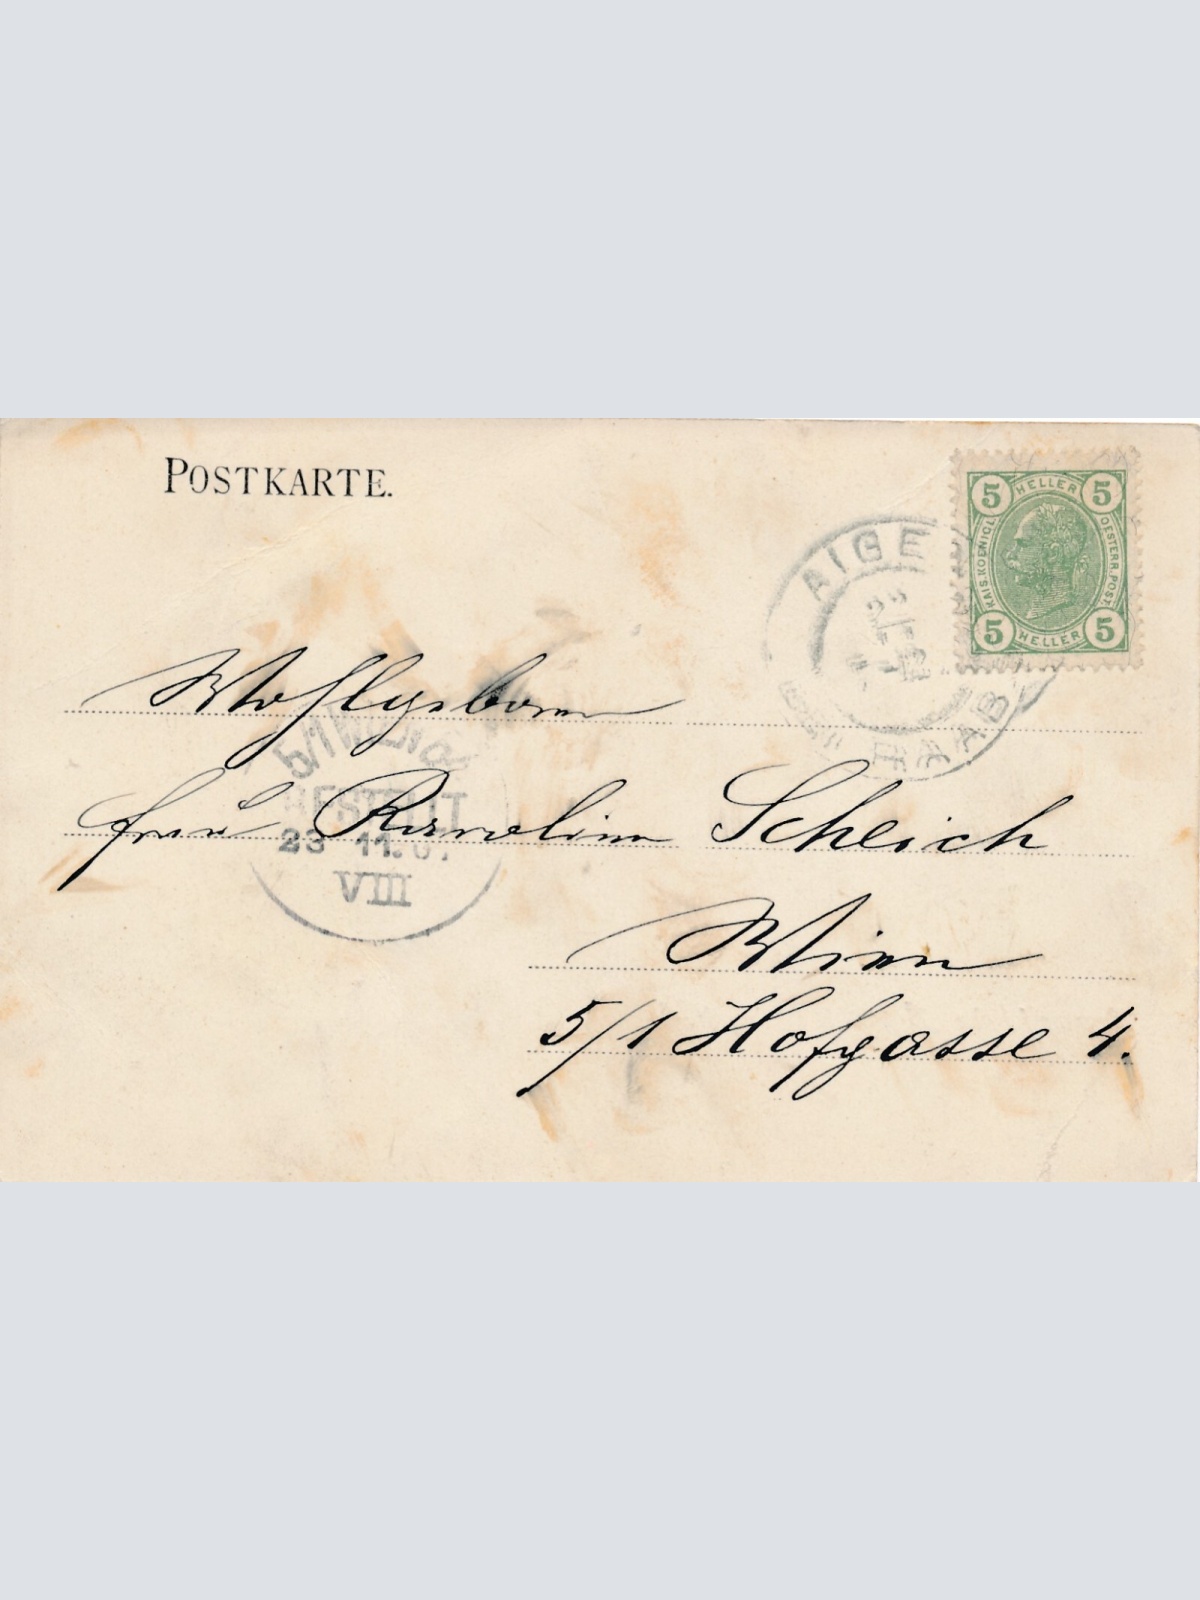 POSTKARTE.
5 HELLER 5
KAIS. KOENIGL. OESTERR. POST
5 HELLER 5
AIGE
RAAB
Wohlgeboren
5/1 WIEN
Frau Karoline Scheich
BESTELLT
23 11. 0
VIII
Wien
5/1 Hofgasse 4.